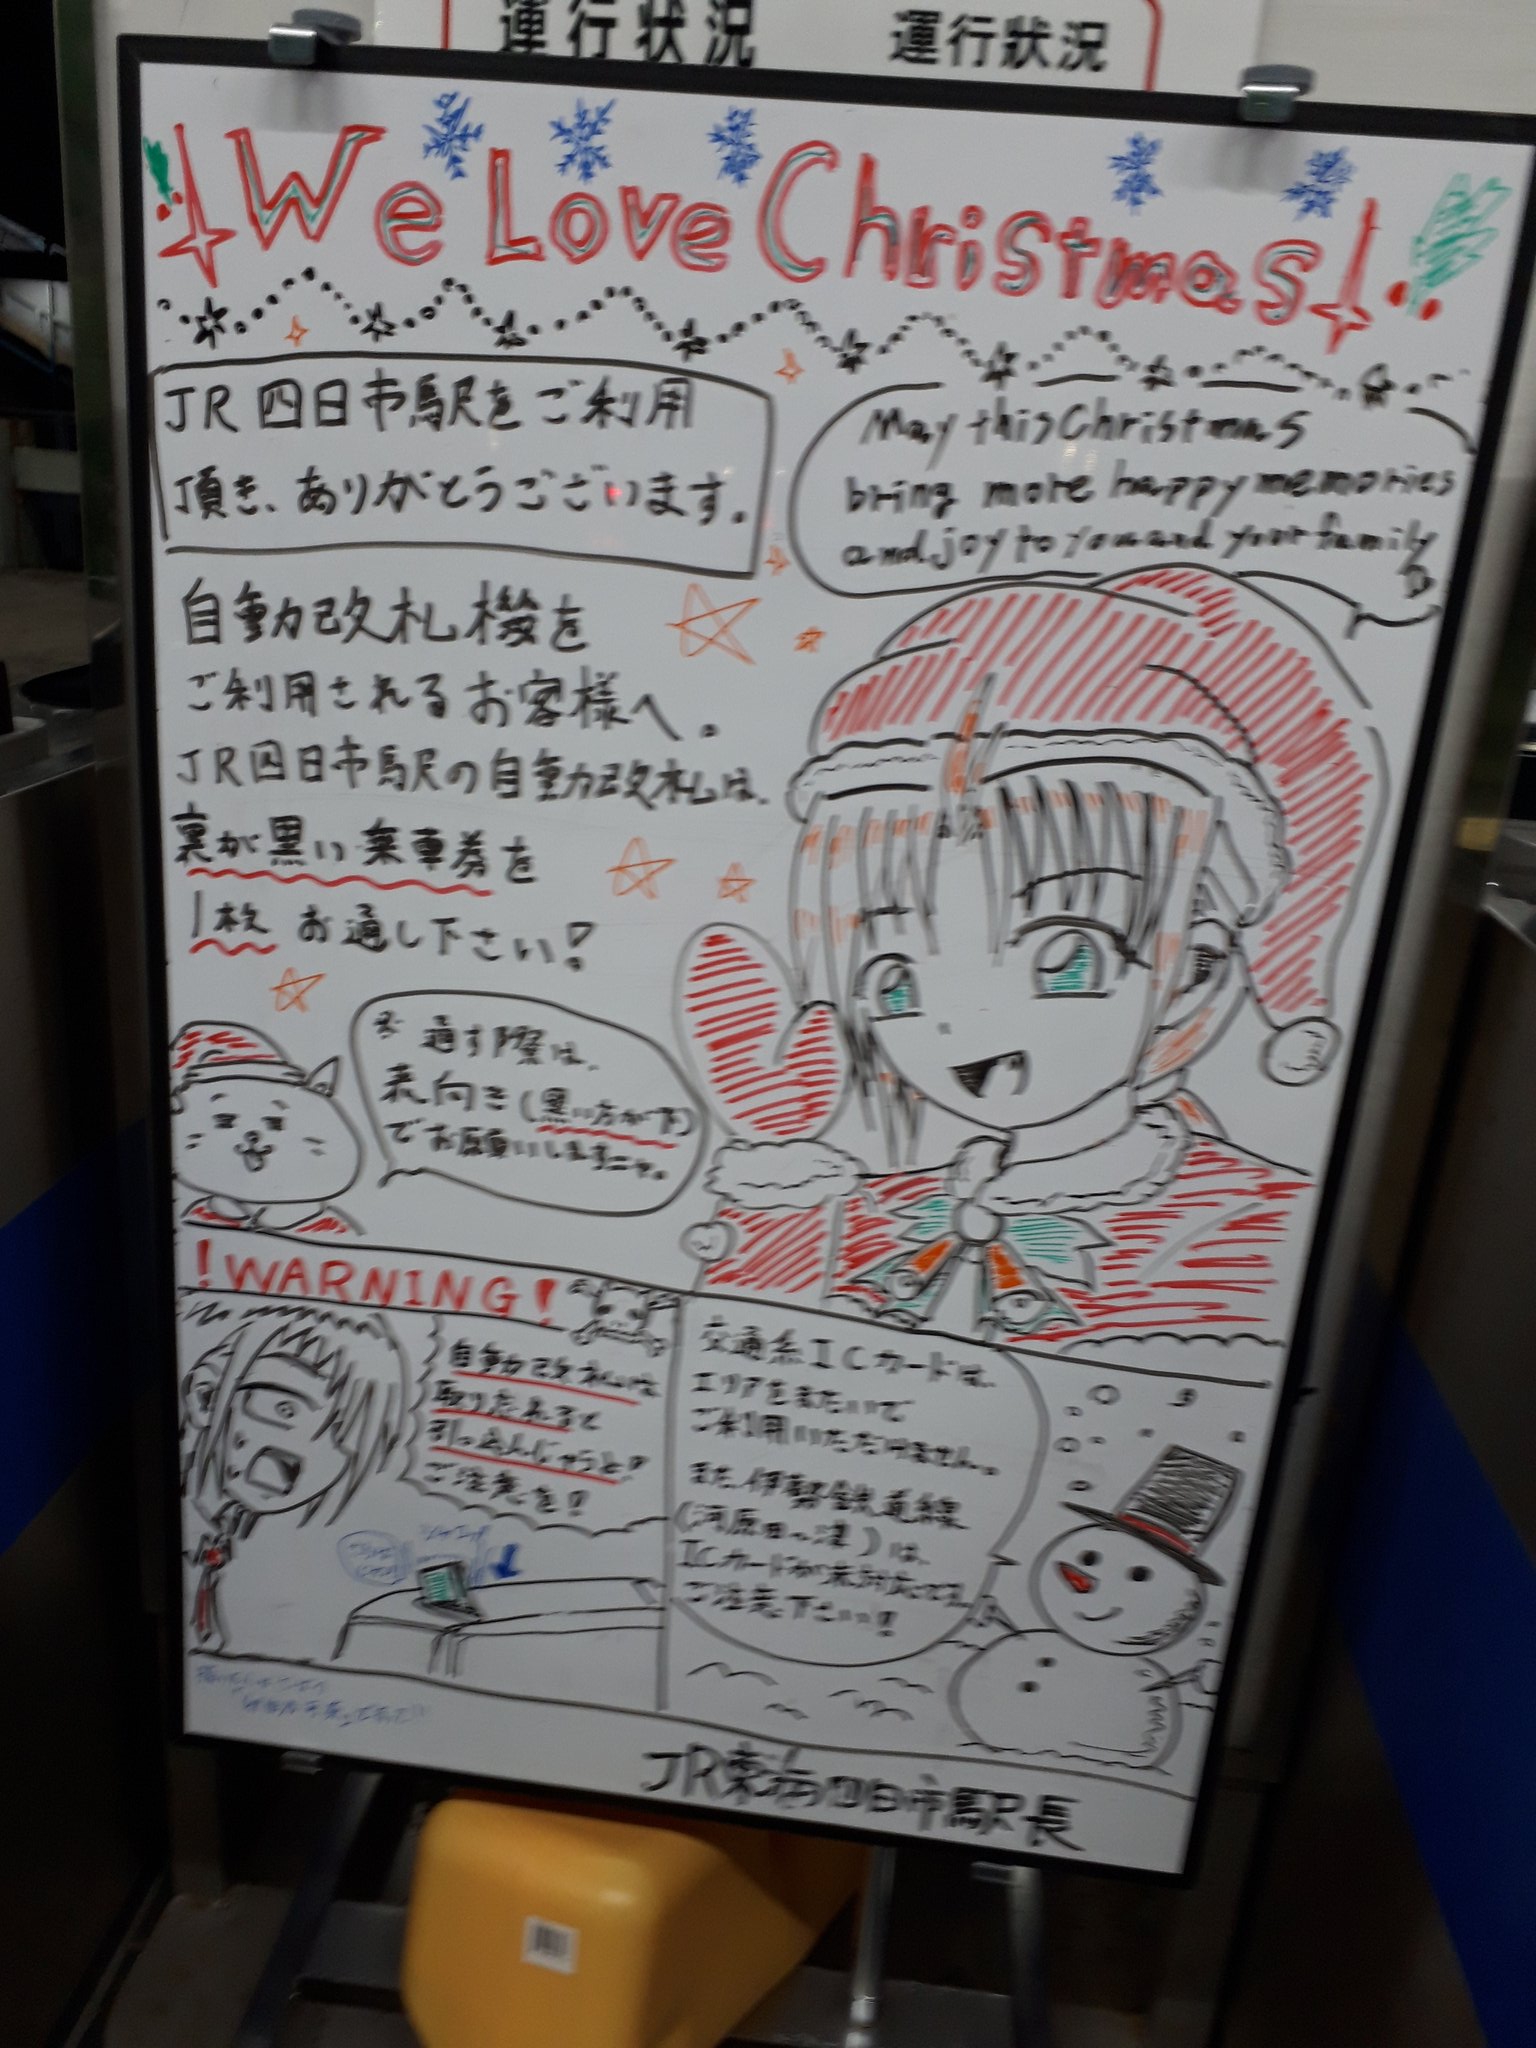 運行状況 運行狀況
We Love Christmas
JR四日市駅をご利用
頂き、ありがとうございます。
May this Christmas
bring more happy memories
and joy to you and your family
自動改札機を
ご利用されるお客様へ。
JR四日市駅の自動改札は、
裏が黒い乗車券を
1枚お通し下さい!
お通す際は、
表向き(黒い方が下)
でお願いしますニャ。
!WARNING!
自動改札は
取りたれると
引っ込んじゃうと!
ご注意を!
交通系ICカードは、
エリアをまたいで
ご利用いただけません。
また、伊勢鉄道線
(河原田~津)は、
ICカードが未対応です。
ご注意下さい!
JR東海四日市駅長